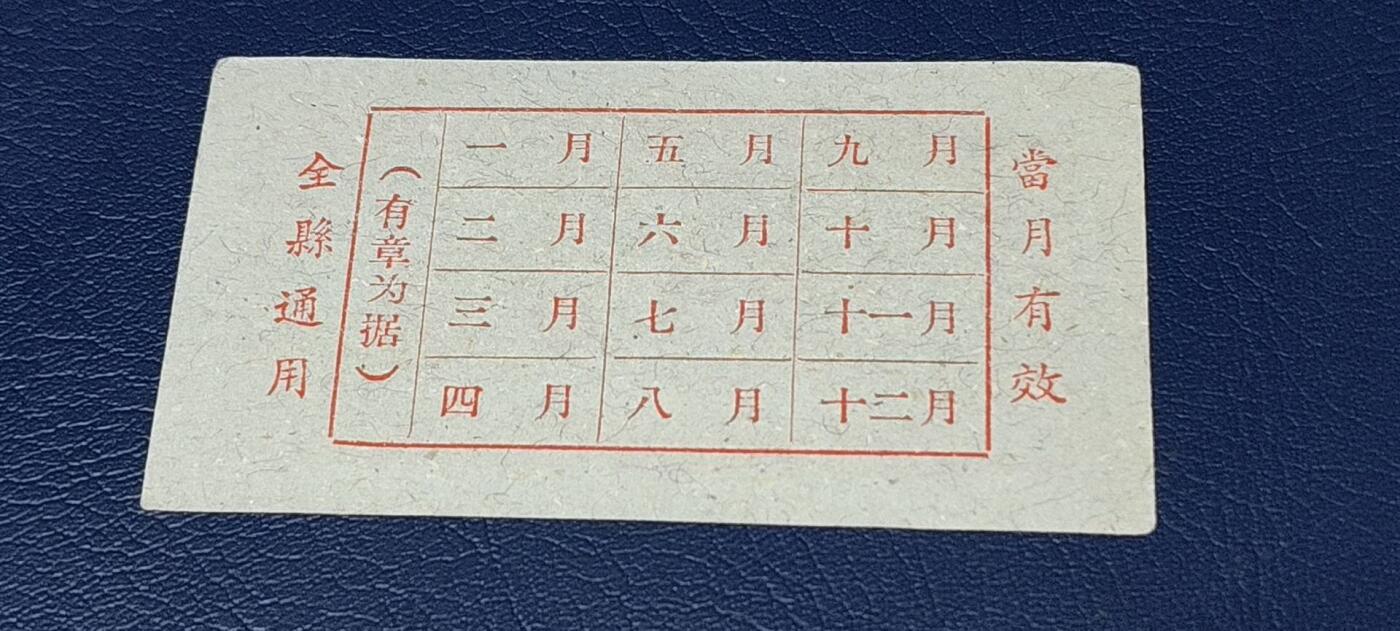 當月有效
一月 五月 九月
二月 六月 十月
三月 七月 十一月
四月 八月 十二月
（有章为据）
全縣通用